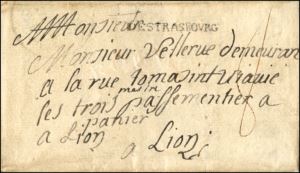 A Monsieur
DE STRASBOURG
Monsieur Vellerue demeuran
a la rue tomassin
les trois passementier a
mestre
panier
a Lion
a Lion